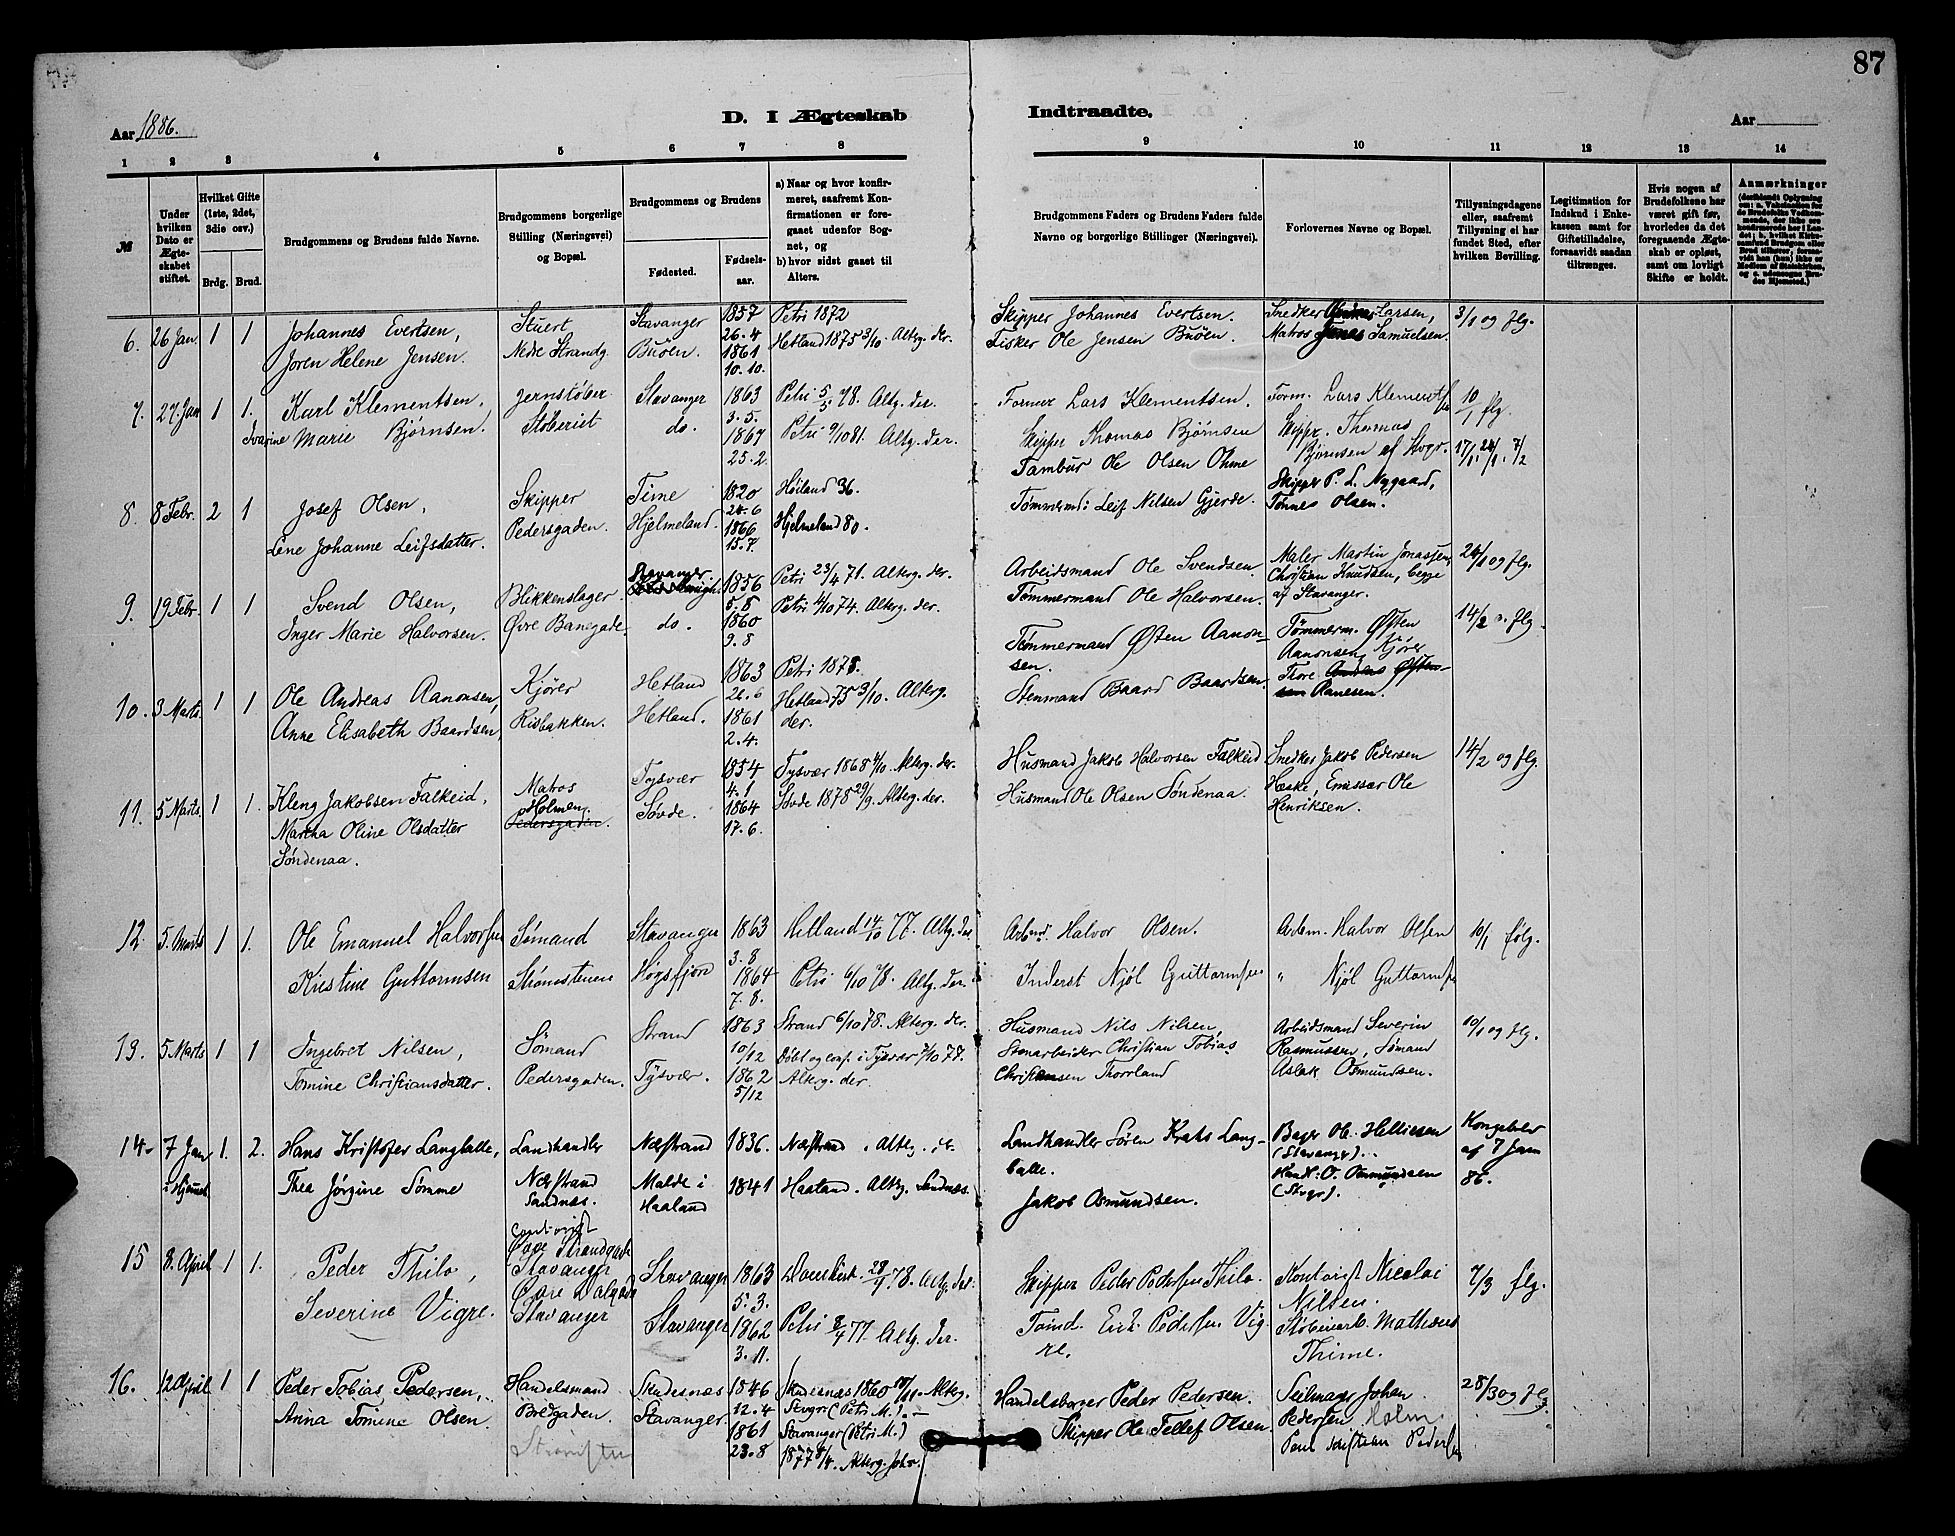 87
Aar 1886.
D. I Ægteskab
Indtraadte.
Aar
1 2 3 4 5 6 7 8
9 10 11 12 13 14
№
Under hvilken Dato er Ægteskabet stiftet.
Hvilket Gifte (1ste, 2det, 3die osv.)
Brdg. Brud.
Brudgommens og Brudens fulde Navne.
Brudgommens borgerlige Stilling (Næringsvei) og Bopæl.
Brudgommens og Brudens
Fødested.
Fødselsaar.
a) Naar og hvor konfirmeret, saafremt Konfirmationen er foregaaet udenfor Sognet, og
b) hvor sidst gaaet til Alters.
Brudgommens Faders og Brudens Faders fulde Navne og borgerlige Stillinger (Næringsvei).
Forlovernes Navne og Bopæl.
Tillysningsdagene eller, saafremt Tillysning ei har fundet Sted, efter hvilken Bevilling.
Legitimation for Indskud i Enkekassen samt for Giftetilladelse, forsaavidt saadan tiltrænges.
Hvis nogen af Brudefolkene har været gift før, hvorledes da det foregaaende Ægteskab er opløst, samt om lovligt Skifte er holdt.
Anmærkninger
6. 26 Jan 1 1 Johannes Evertsen, Stuert Stavanger 1857 Petri 1872 Skipper Johannes Evertsen. Snedker Larsen, 3/1 og flg.
26.4
Joren Helene Jensen. Nedre Strandg Buöen. 1861 Hetland 1875 3/10. Alterg. der. Fisker Ole Jensen Buöen. Matros Jonas Samuelsen.
10.10.
7. 27 Jan 1 1. Karl Klementsen, Jernstøber Stavanger 1863 Petri 5/5 78. Altg. der. Former Lars Klementsen. Form. Lars Klementsen 10/1 flg.
3.5.
Ivarine Marie Bjørnsen. Støberiet do. 1867 Petri 9/10 81. Altg. der. Skipper Thomas Bjørnsen Skippr. Thomas Bjørnsen af Stvgr.
25.2.
8. 8 Febr. 2 1 Josef Olsen, Skipper Time 1820 Høiland 36. Tambur Ole Olsen Ohme Skipper P. L. Nygaard, 17/1, 24/1, 7/2
24.6
Lene Johanne Leifsdatter. Pedersgaden. Hjelmeland. 1866 Hjelmeland 80. Tømmermd: Leif Nilsen Gjerde. Tønnes Olsen.
15.7.
9. 19 Febr. 1 1 Svend Olsen, Blikkenslager Stavanger. 1856 Petri 23/4 71. Alterg. der. Arbeidsmand Ole Svendsen. Maler Martin Jonassen, 24/1 og flg.
5.8
Inger Marie Halvorsen. Øvre Banegade. do. 1860 Petri 4/10 74. Alterg. der. Tømmermand Ole Halvorsen. Christian Knudsen, begge af Stavanger.
9.8
10. 3 Marts. 1 1 Ole Andreas Aanonsen, Kjører Hetland 1863 Petri 1878. Tømmermand Østen Aanonsen. Tømmerm. Østen Aanonsen, Kjører 14/2 o. flg.
26.6
Anne Elisabeth Baardsen, Risbakken. Hetland. 1861 Hetland 75 3/10. Alterg. der. Stenmand Baard Baardsen. Thore Aanesen.
2.4.
11. 5 Marts. 1 1. Kleng Jakobsen Falkeid, Matros Tysvær 1854 Tysvær 1868 4/10. Alterg. der. Husmand Jakob Halvorsen Falkeid Snedker Jakob Pedersen 14/2 og flg.
4.1
Martha Oline Olsdatter Søndenaa. Holmen Pedersgaden. Søvde. 1864 Søvde 1878 29/9. Alterg. der. Husmand Ole Olsen Søndenaa. Haske, Emissær Ole Henriksen.
17.6.
12. 5. Marts 1 1. Ole Emanuel Halvorsen Sømand Stavanger 1863 Hetland 14/10 77. Altg. der Arbmd. Halvor Olsen. Arbm. Halvor Olsen 10/1 følg.
3.8
Kristine Guttormsen Strømstenen Høgsfjord 1864 Petri 6/10 78. Altg. der. Inderst Njøl Guttormsen " Njøl Guttormsen
7.8.
13. 5 Marts 1 1 Ingebret Nilsen, Sømand Strand 1863 Strand 6/10 78. Alterg. der. Husmand Nils Nilsen, Arbeidsmand Severin 10/1 og flg.
10/12
Tomine Christiansdatter. Pedersgaden. Tysvær. 1862 Døbt og conf. i Tysvær 7/10 77. Alterg. der. Stenarbeider Christian Tobias Christiansen Thorrland Rasmussen, Sømand Aslak Osmundsen.
5/12
14. 7 Jan 1. 2. Hans Kristofer Langballe, Landhandler Næstrand 1836. Næstrand. Altg. Landhandler Søren Krats Langballe. Bager Ol. Helliesen (Stavanger). Kongebrev af 7 Jan 86.
Thea Jörgine Sömme Næstrand Sandnæs. Malde i Haaland 1841 Haaland. Altg. Sandnæs. Jakob Osmundsen. Handl: O. Osmundsen (Stvgr).
15 8. April 1 1. Peder Thilo, Contorist Øvre Strandgade Stavanger Stavanger 1863 Domkirk. 28/4 78. Altg. der. Skipper Peder Pedersen Thilo. Kontorist Nicolai Nilsen. 7/3 flg.
5.3.
Severine Vigre. Øvre Stavanger Stavanger 1862 Petri 8/4 77. Altg. der. Tømd. Erik Pedersen Vigre. Støberiarb. Mathæus Thime.
3.11.
16. 12 April 1 1 Peder Tobias Pedersen, Handelsmand Skudesnæs 1846 Skudesnæs 1860 Alterg. Stvgr (Petri M.). Handelsborger Peder Pedersen. Seilmager Johan Pedersen Holm 28/3 og flg.
12.4
Anna Tomine Olsen. Bredgaden. Stavanger. 1861 Stavanger (Petri M.) 1877 8/4. Alterg. Skipper Ole Tellef Olsen Pedersen
23.8